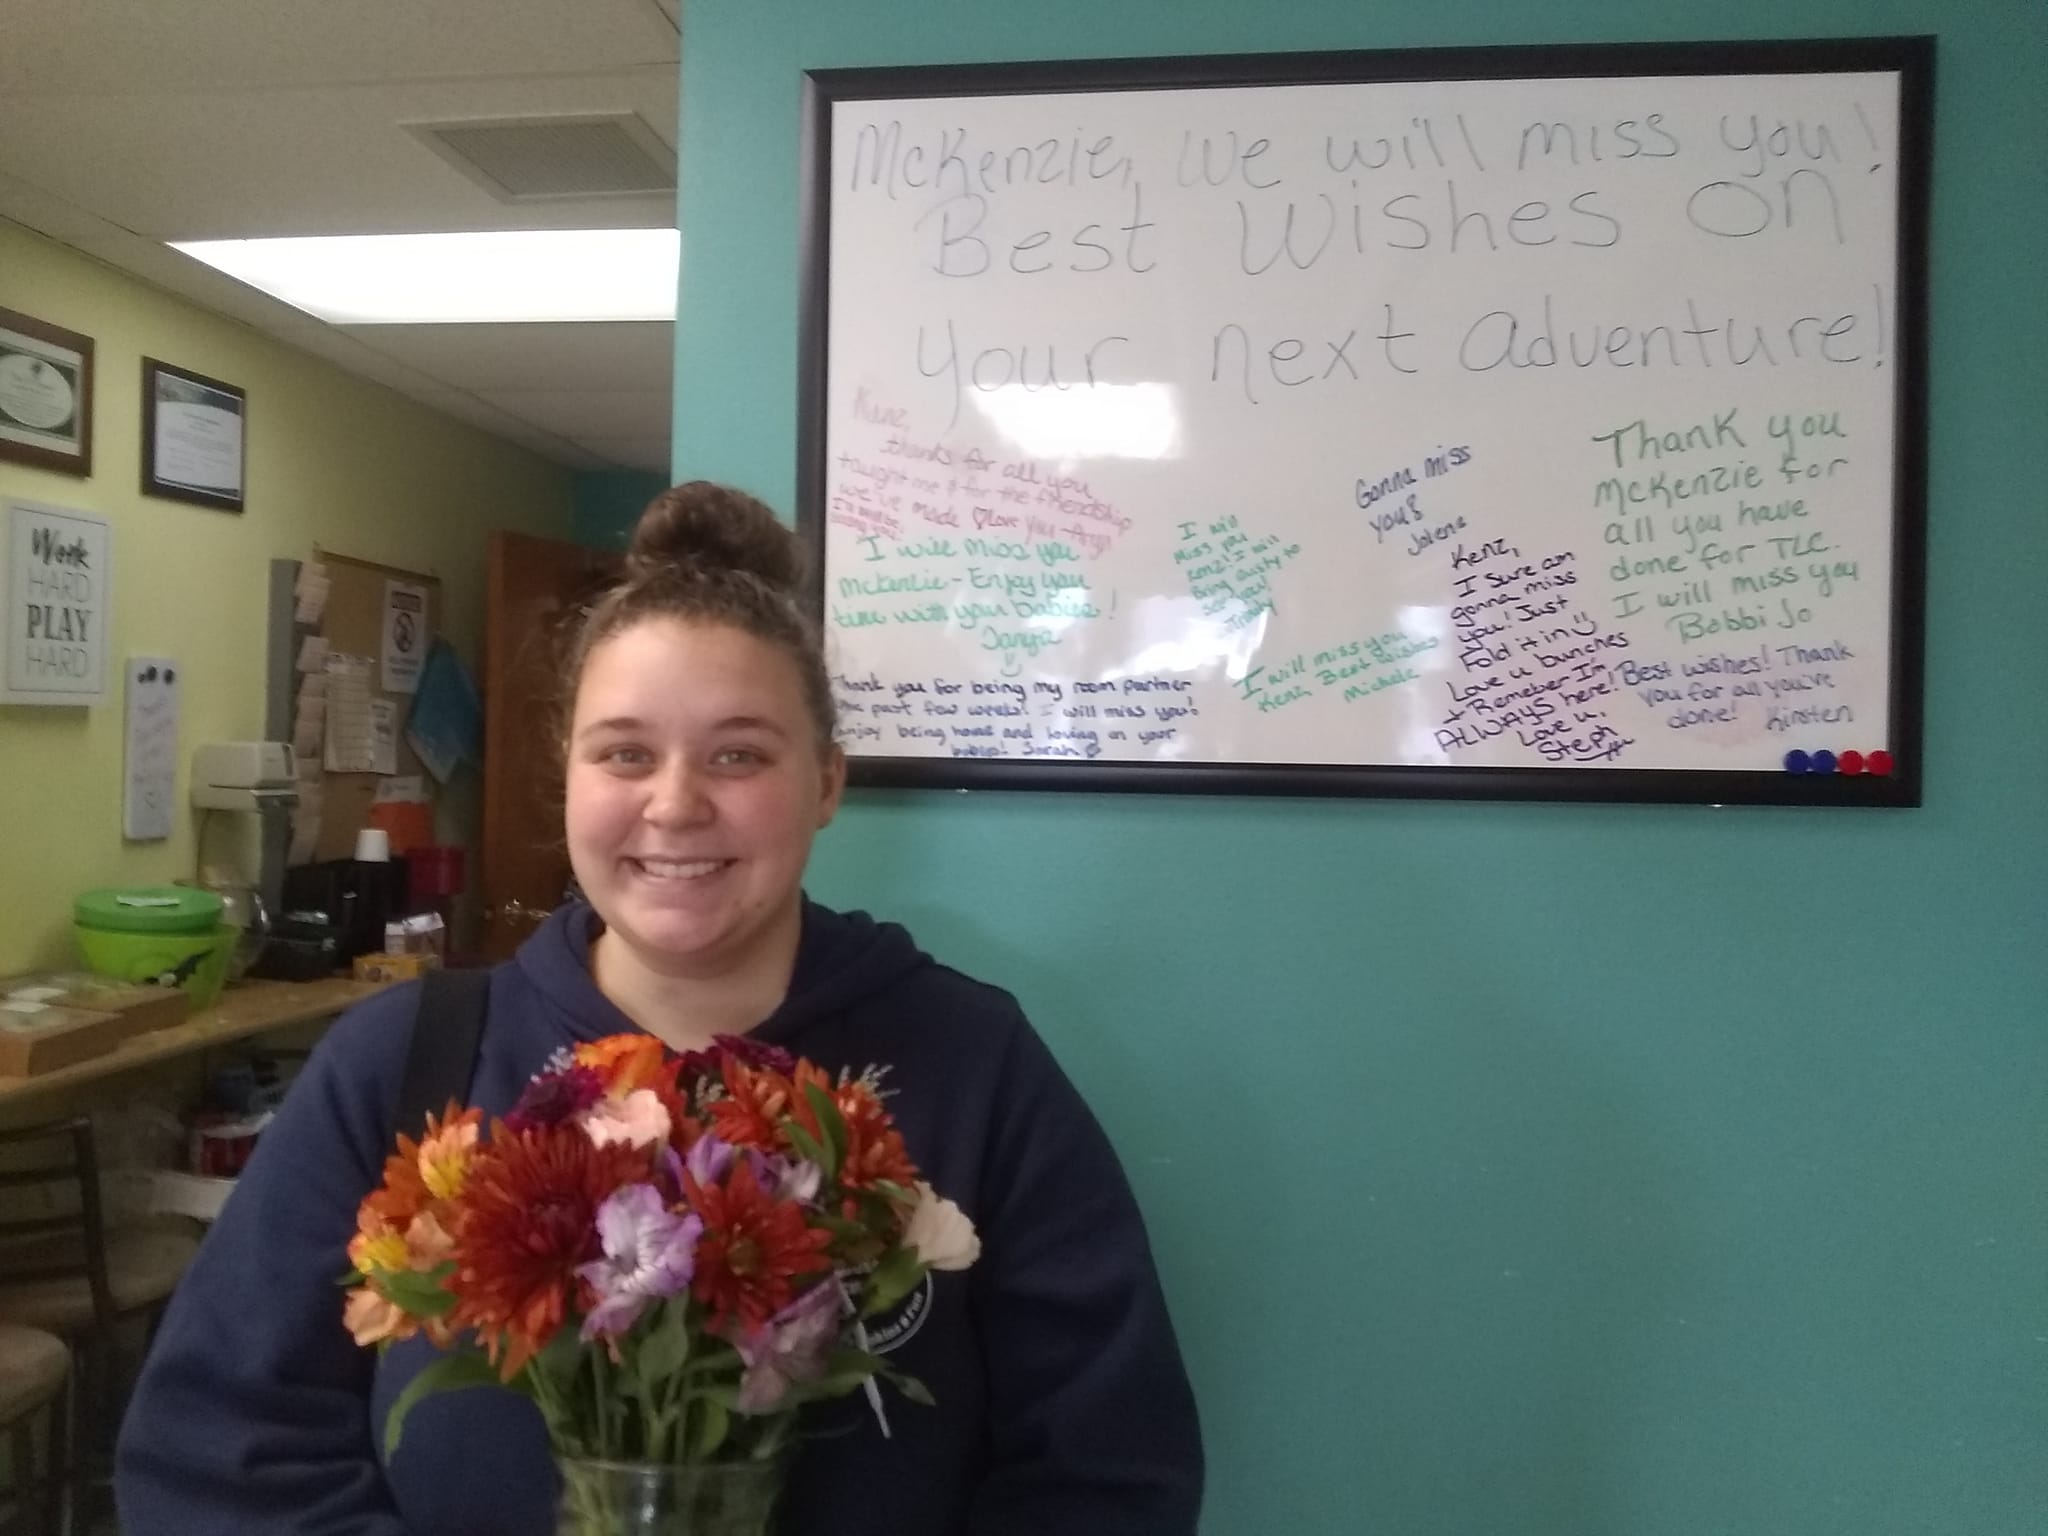 McKenzie, We will miss you!
Best Wishes on
your next adventure!
thanks for all you
taught me & for the friendship
we've made ♡ Love you - 
I will miss you
McKenzie - Enjoy your
time with your babies!
Tanya
Thank you for being my room partner
the past few weeks! I will miss you!
enjoy being home and loving on your
Sarah
I will
miss you
Kenz! I will
Bring dusty to
see you!
Trinity
I will miss you
Kenz Best wishes
Michele
Gonna miss
you!
Jolene
Kenz,
I sure am
gonna miss
you! Just
Fold it in
Love u bunches
+ Remeber I'm
ALWAYS here!
Love u,
Steph
Thank you
McKenzie for
all you have
done for TLC.
I will miss you
Bobbi Jo
Best wishes! Thank
you for all you've
done! Kirsten
Work
HARD
PLAY
HARD